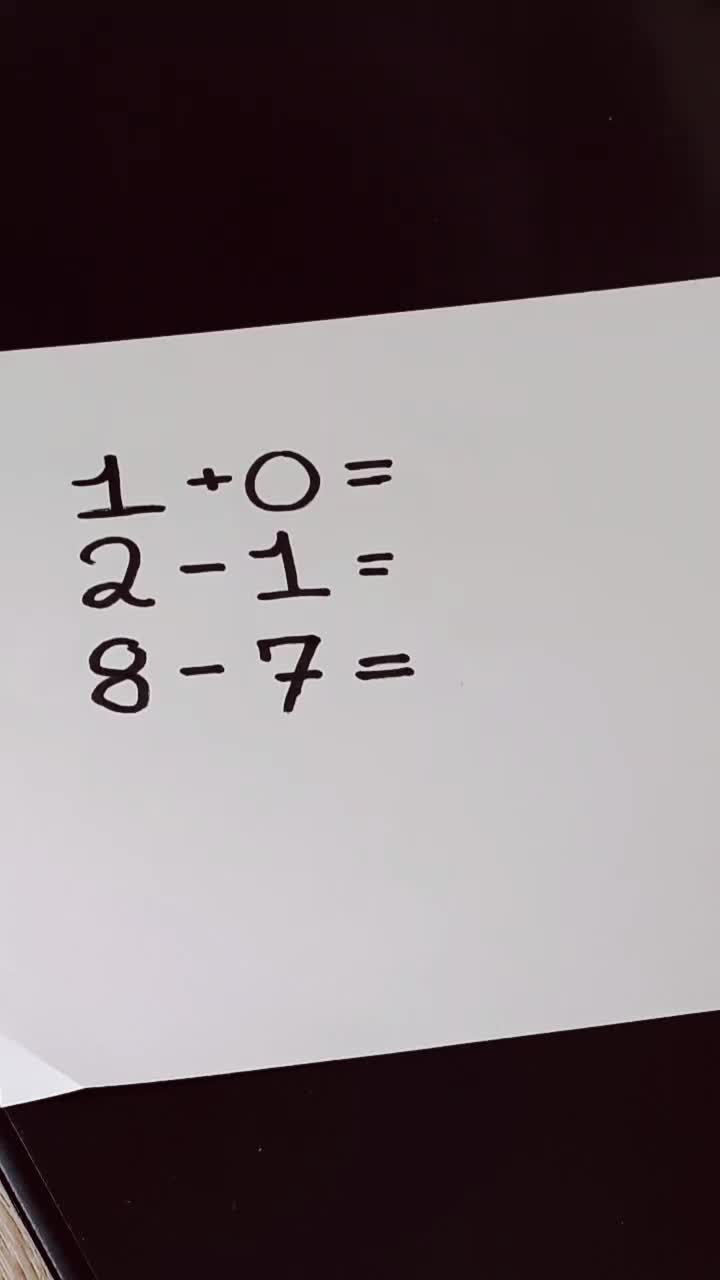 1 + 0 =
2 - 1 =
8 - 7 =